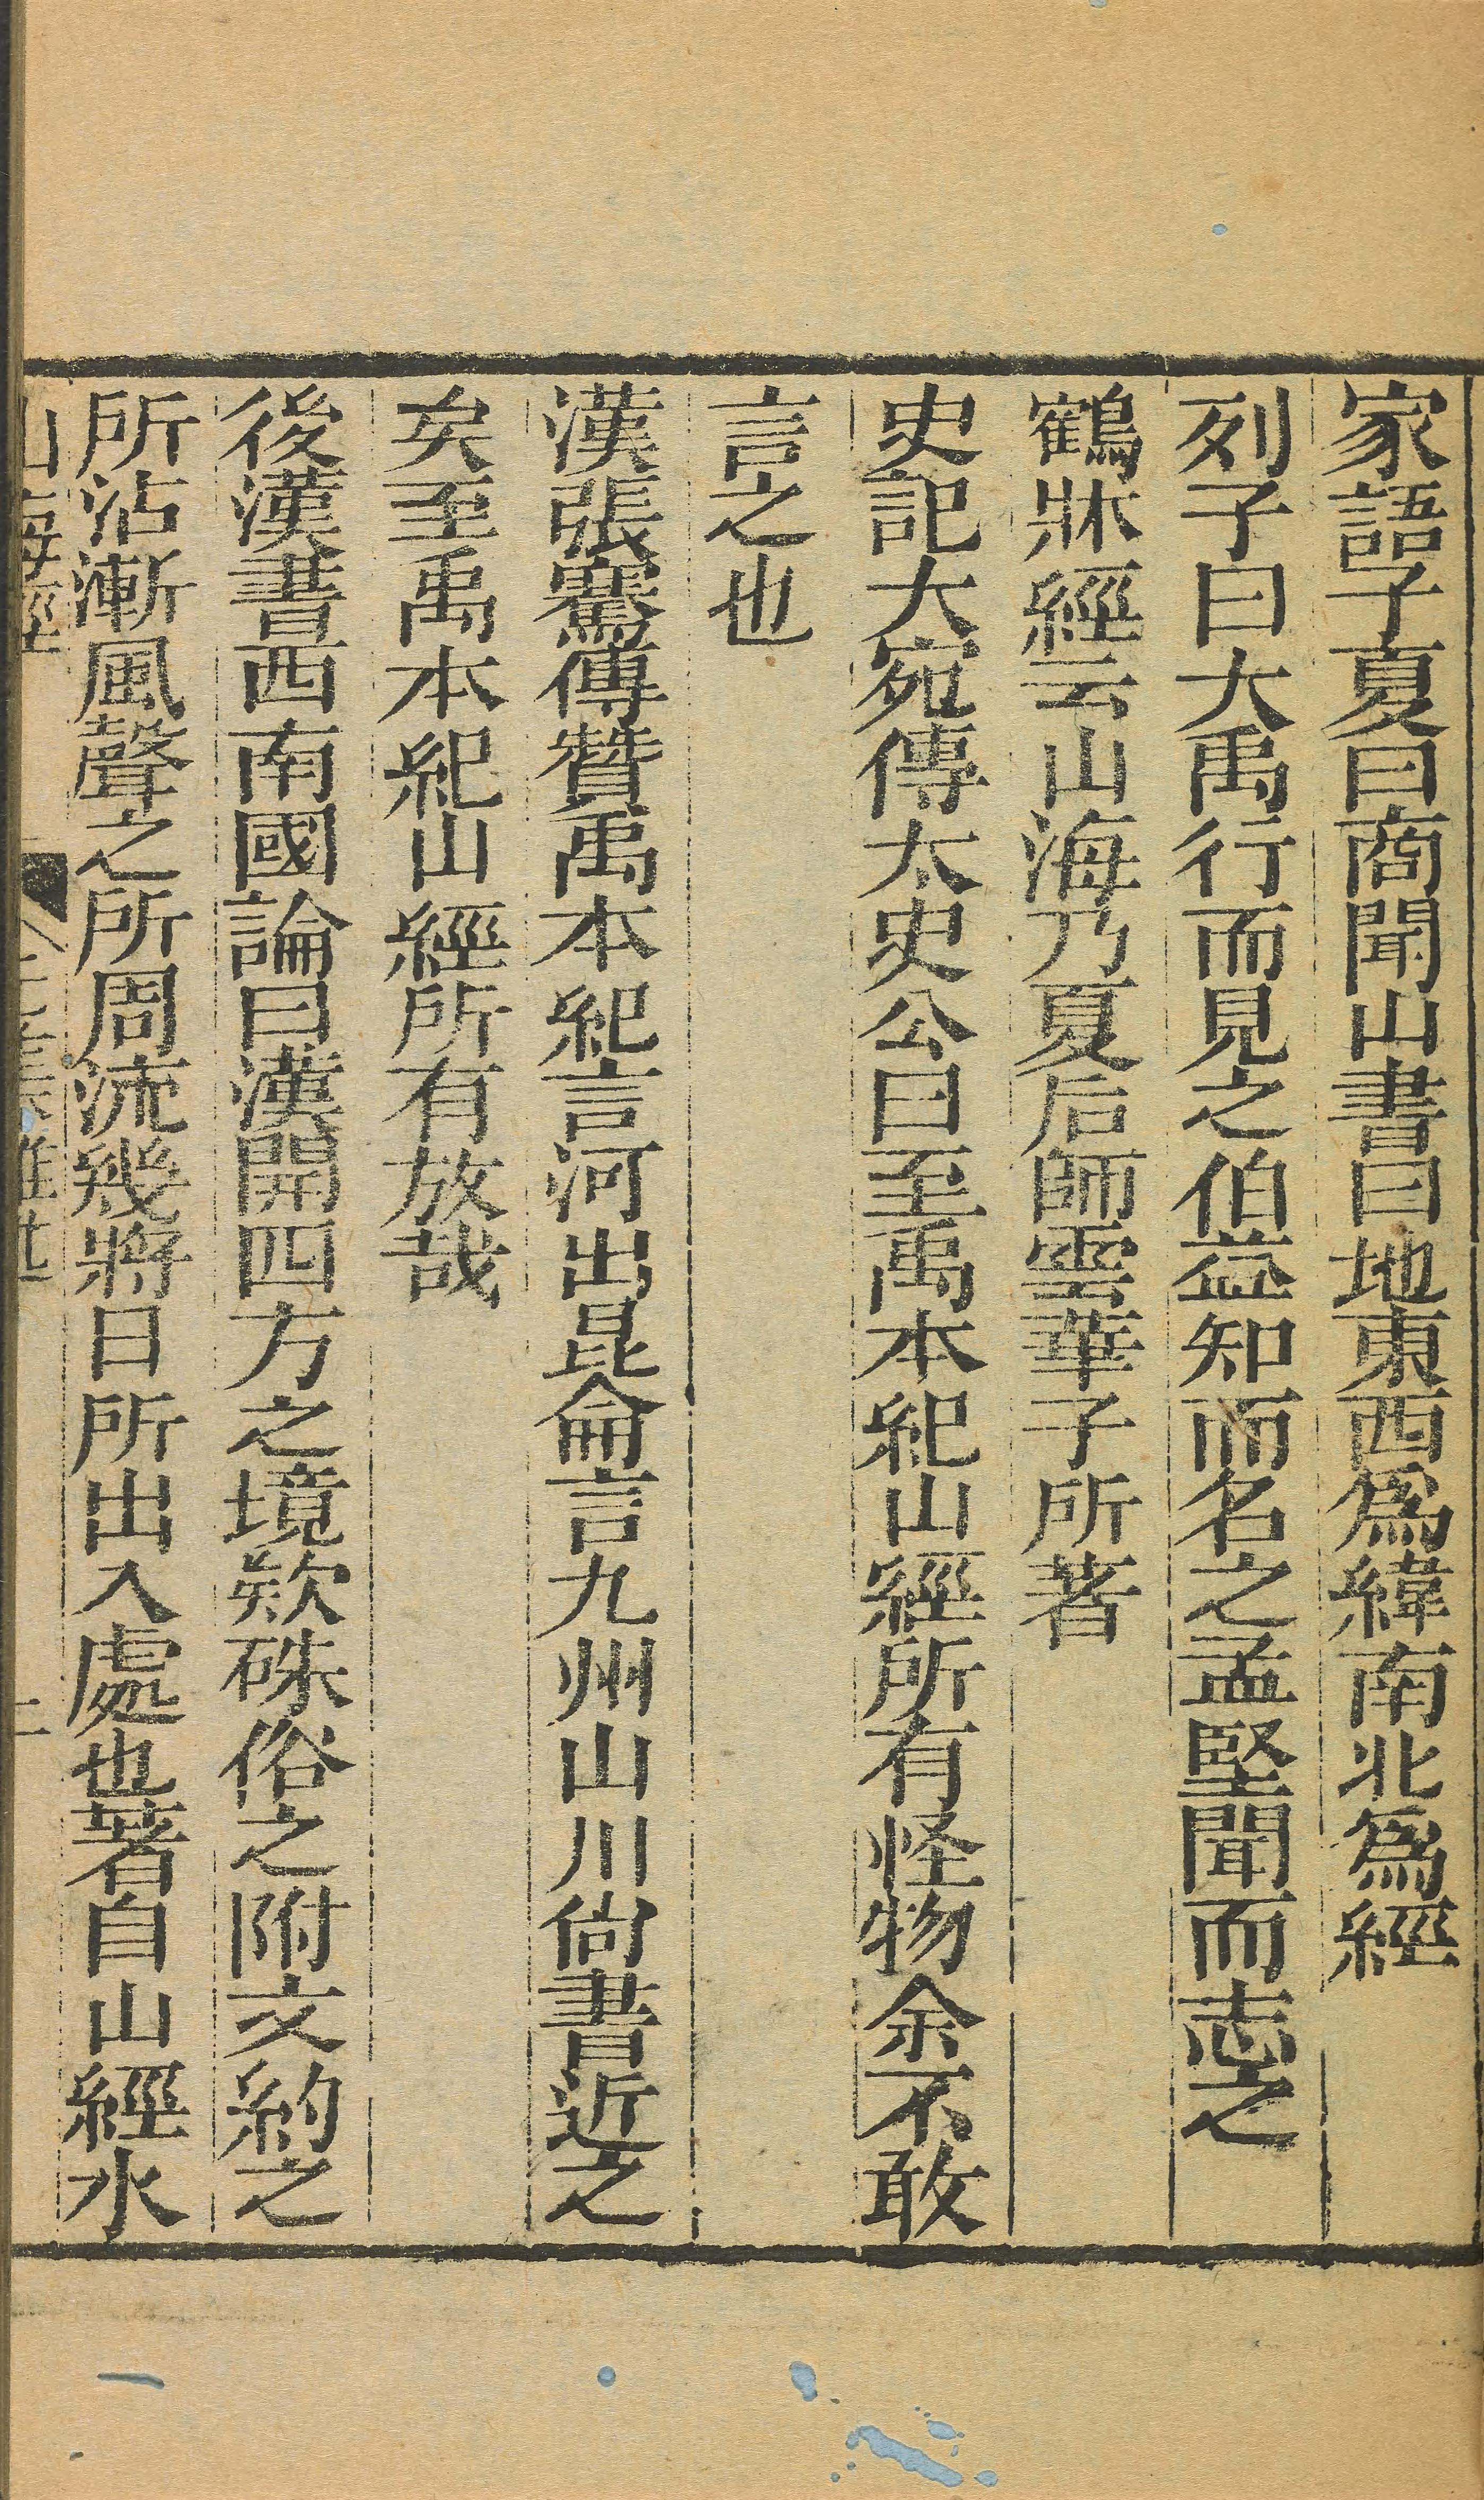 家語子夏曰商聞山書曰地東西爲緯南北爲經
列子曰大禹行而見之伯益知而名之孟堅聞而志之
鶴牀經云山海乃夏后師雲華子所著
史記大宛傳太史公曰至禹本紀山經所有怪物余不敢
言之也
漢張騫傳贊禹本紀言河出昆侖言九州山川尙書近之
矣至禹本紀山經所有放哉
後漢書西南國論曰漢開四方之境欵硃俗之附文約之
所沾漸風聲之所周流幾將日所出入處也著自山經水
山海經
雜述